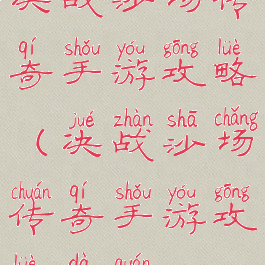 决战沙场传
qí shǒu yóu gōng lüè
奇手游攻略
jué zhàn shā chǎng
(决战沙场
chuán qí shǒu yóu gōng
传奇手游攻
lüè dà quán